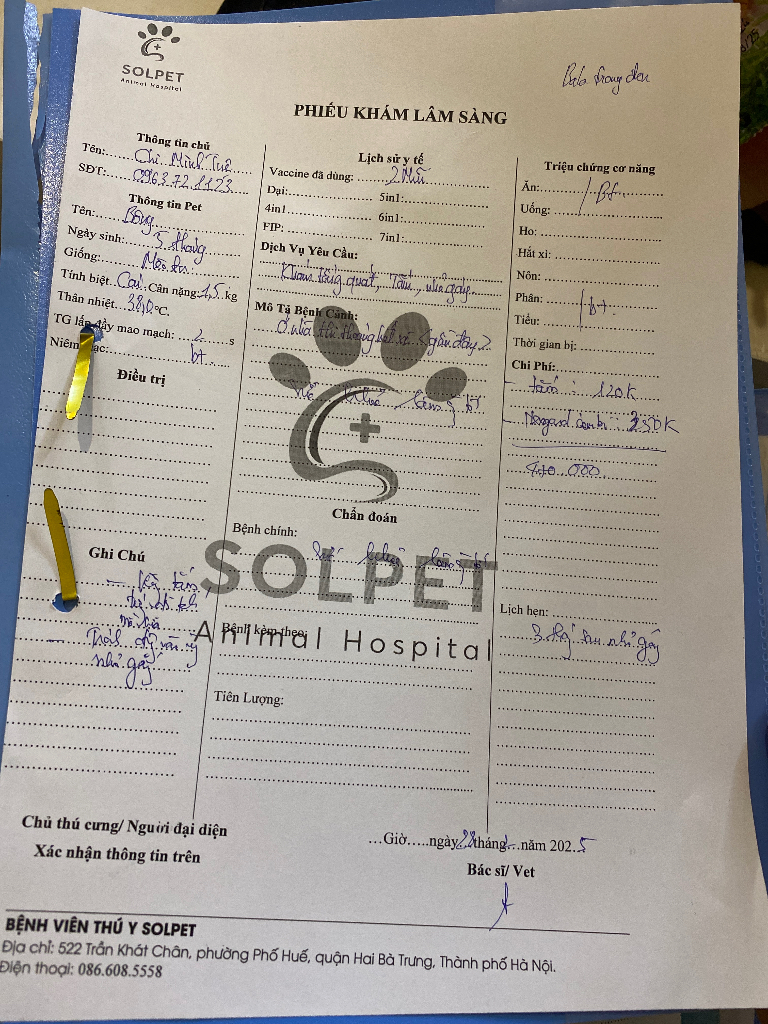 SOLPET
Animal Hospital
PHIẾU KHÁM LÂM SÀNG
Thông tin chủ
Tên: Chị Minh Tuệ
SĐT: 0963.72.1123
Thông tin Pet
Tên: Bông
Ngày sinh: 3 tháng
Giống: Mèo
Tính biệt. Cái Cân nặng: 1,5 kg
Thân nhiệt. 38,0 °C.
TG lấp đầy mao mạch: 2 s
Niêm mạc: bt
Điều trị
Ghi Chú
tắm
nhỏ gáy
Lịch sử y tế
Vaccine đã dùng: 2 Mũi
Dại: 5in1:
4in1 6in1:
FIP: 7in1:
Dịch Vụ Yêu Cầu:
Khám tổng quát, Tắm, nhỏ gáy
Mô Tả Bệnh Cảnh:
Ở nhà thi thoảng hắt xì (gần đây)
Chẩn đoán
Bệnh chính:
SOLPET
Animal Hospital
Bệnh kèm theo:
Tiên Lượng:
Triệu chứng cơ năng
Ăn: Bt
Uống:
Ho:
Hắt xì:
Nôn:
Phân: bt
Tiểu:
Thời gian bị:
Chi Phí:
- tắm : 120K
- Nexgard combo : 350K
470 000
Lịch hẹn:
nhỏ gáy
Chủ thú cưng/ Người đại diện
Xác nhận thông tin trên
...Giờ.....ngày 28 tháng năm 2025
Bác sĩ/ Vet
BỆNH VIỆN THÚ Y SOLPET
Địa chỉ: 522 Trần Khát Chân, phường Phố Huế, quận Hai Bà Trưng, Thành phố Hà Nội.
Điện thoại: 086.608.5558